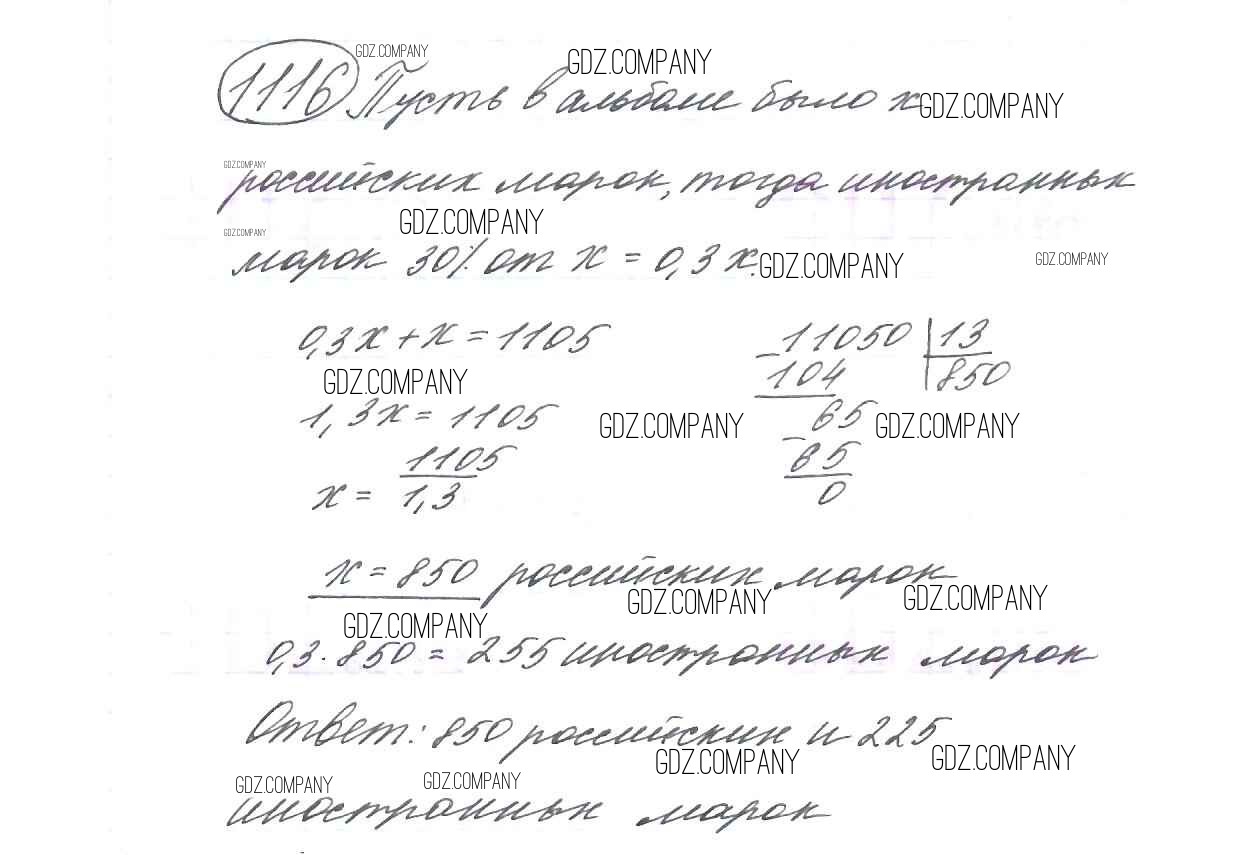 GDZ.COMPANY
1116 Пусть в альбоме было х GDZ.COMPANY GDZ.COMPANY
GDZ.COMPANY
российских марок, тогда иностранных
GDZ.COMPANY GDZ.COMPANY
марок 30% от х = 0,3х. GDZ.COMPANY GDZ.COMPANY
0,3х + х = 1105
GDZ.COMPANY
1,3х = 1105
х = 1105 / 1,3
11050 | 13
104 850
GDZ.COMPANY 65 GDZ.COMPANY
65
0
х = 850 российских марок
GDZ.COMPANY GDZ.COMPANY GDZ.COMPANY
0,3 · 850 = 255 иностранных марок
Ответ: 850 российских и 225
GDZ.COMPANY GDZ.COMPANY GDZ.COMPANY GDZ.COMPANY
иностранных марок